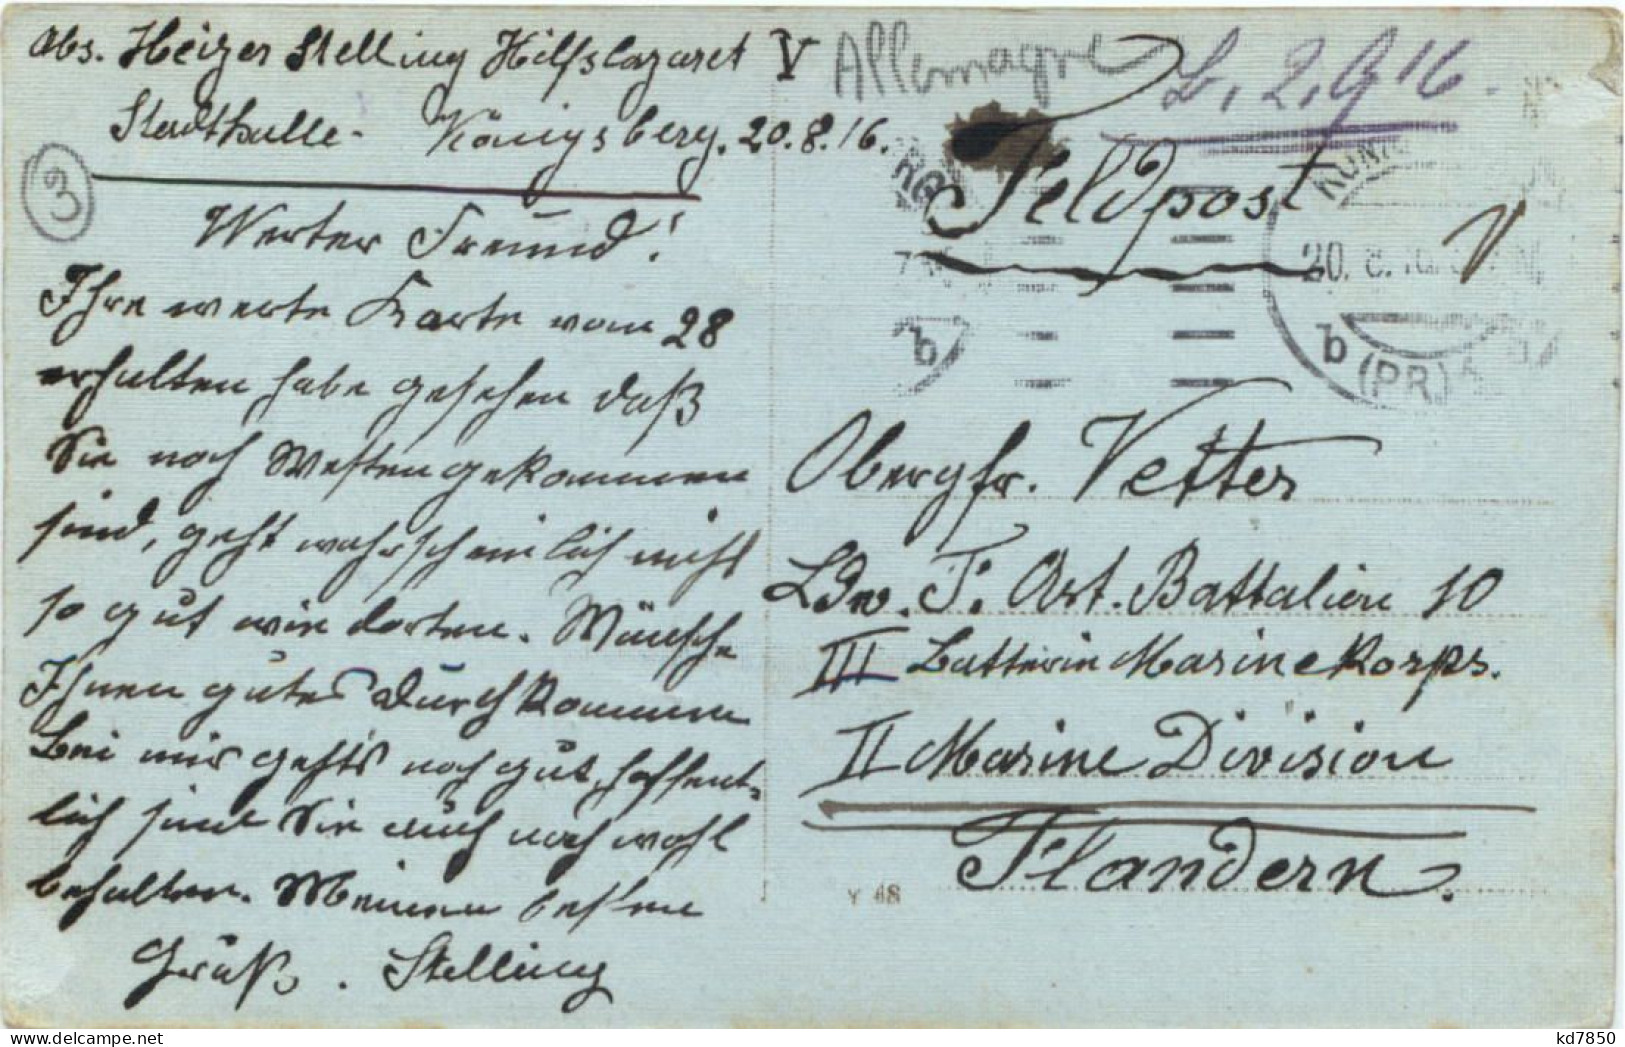 Abs. Heizer Stelling Hilfslazaret V
Stadthalle - Königsberg. 20.8.16.
3
Werter Freund!
Ihre werte Karte vom 28
erhalten habe gesehen daß
Sie nach Westen gekommen
sind, geht wahrscheinlich nicht
so gut wie dorten. Wünsche
Ihnen gutes Durchkommen
Bei mir gehts noch gut, hoffent-
lich sind Sie auch noch wohl
behalten. Meinen besten
Gruß. Stelling
Allemagne
2.9.16.
Feldpost
20. 8.
b
b
(PR)
Obergfr. Vetter
Art. Battalion 10
III Batterie Marinekorps.
II Marine Division
Flandern.
Y 48
kd7850